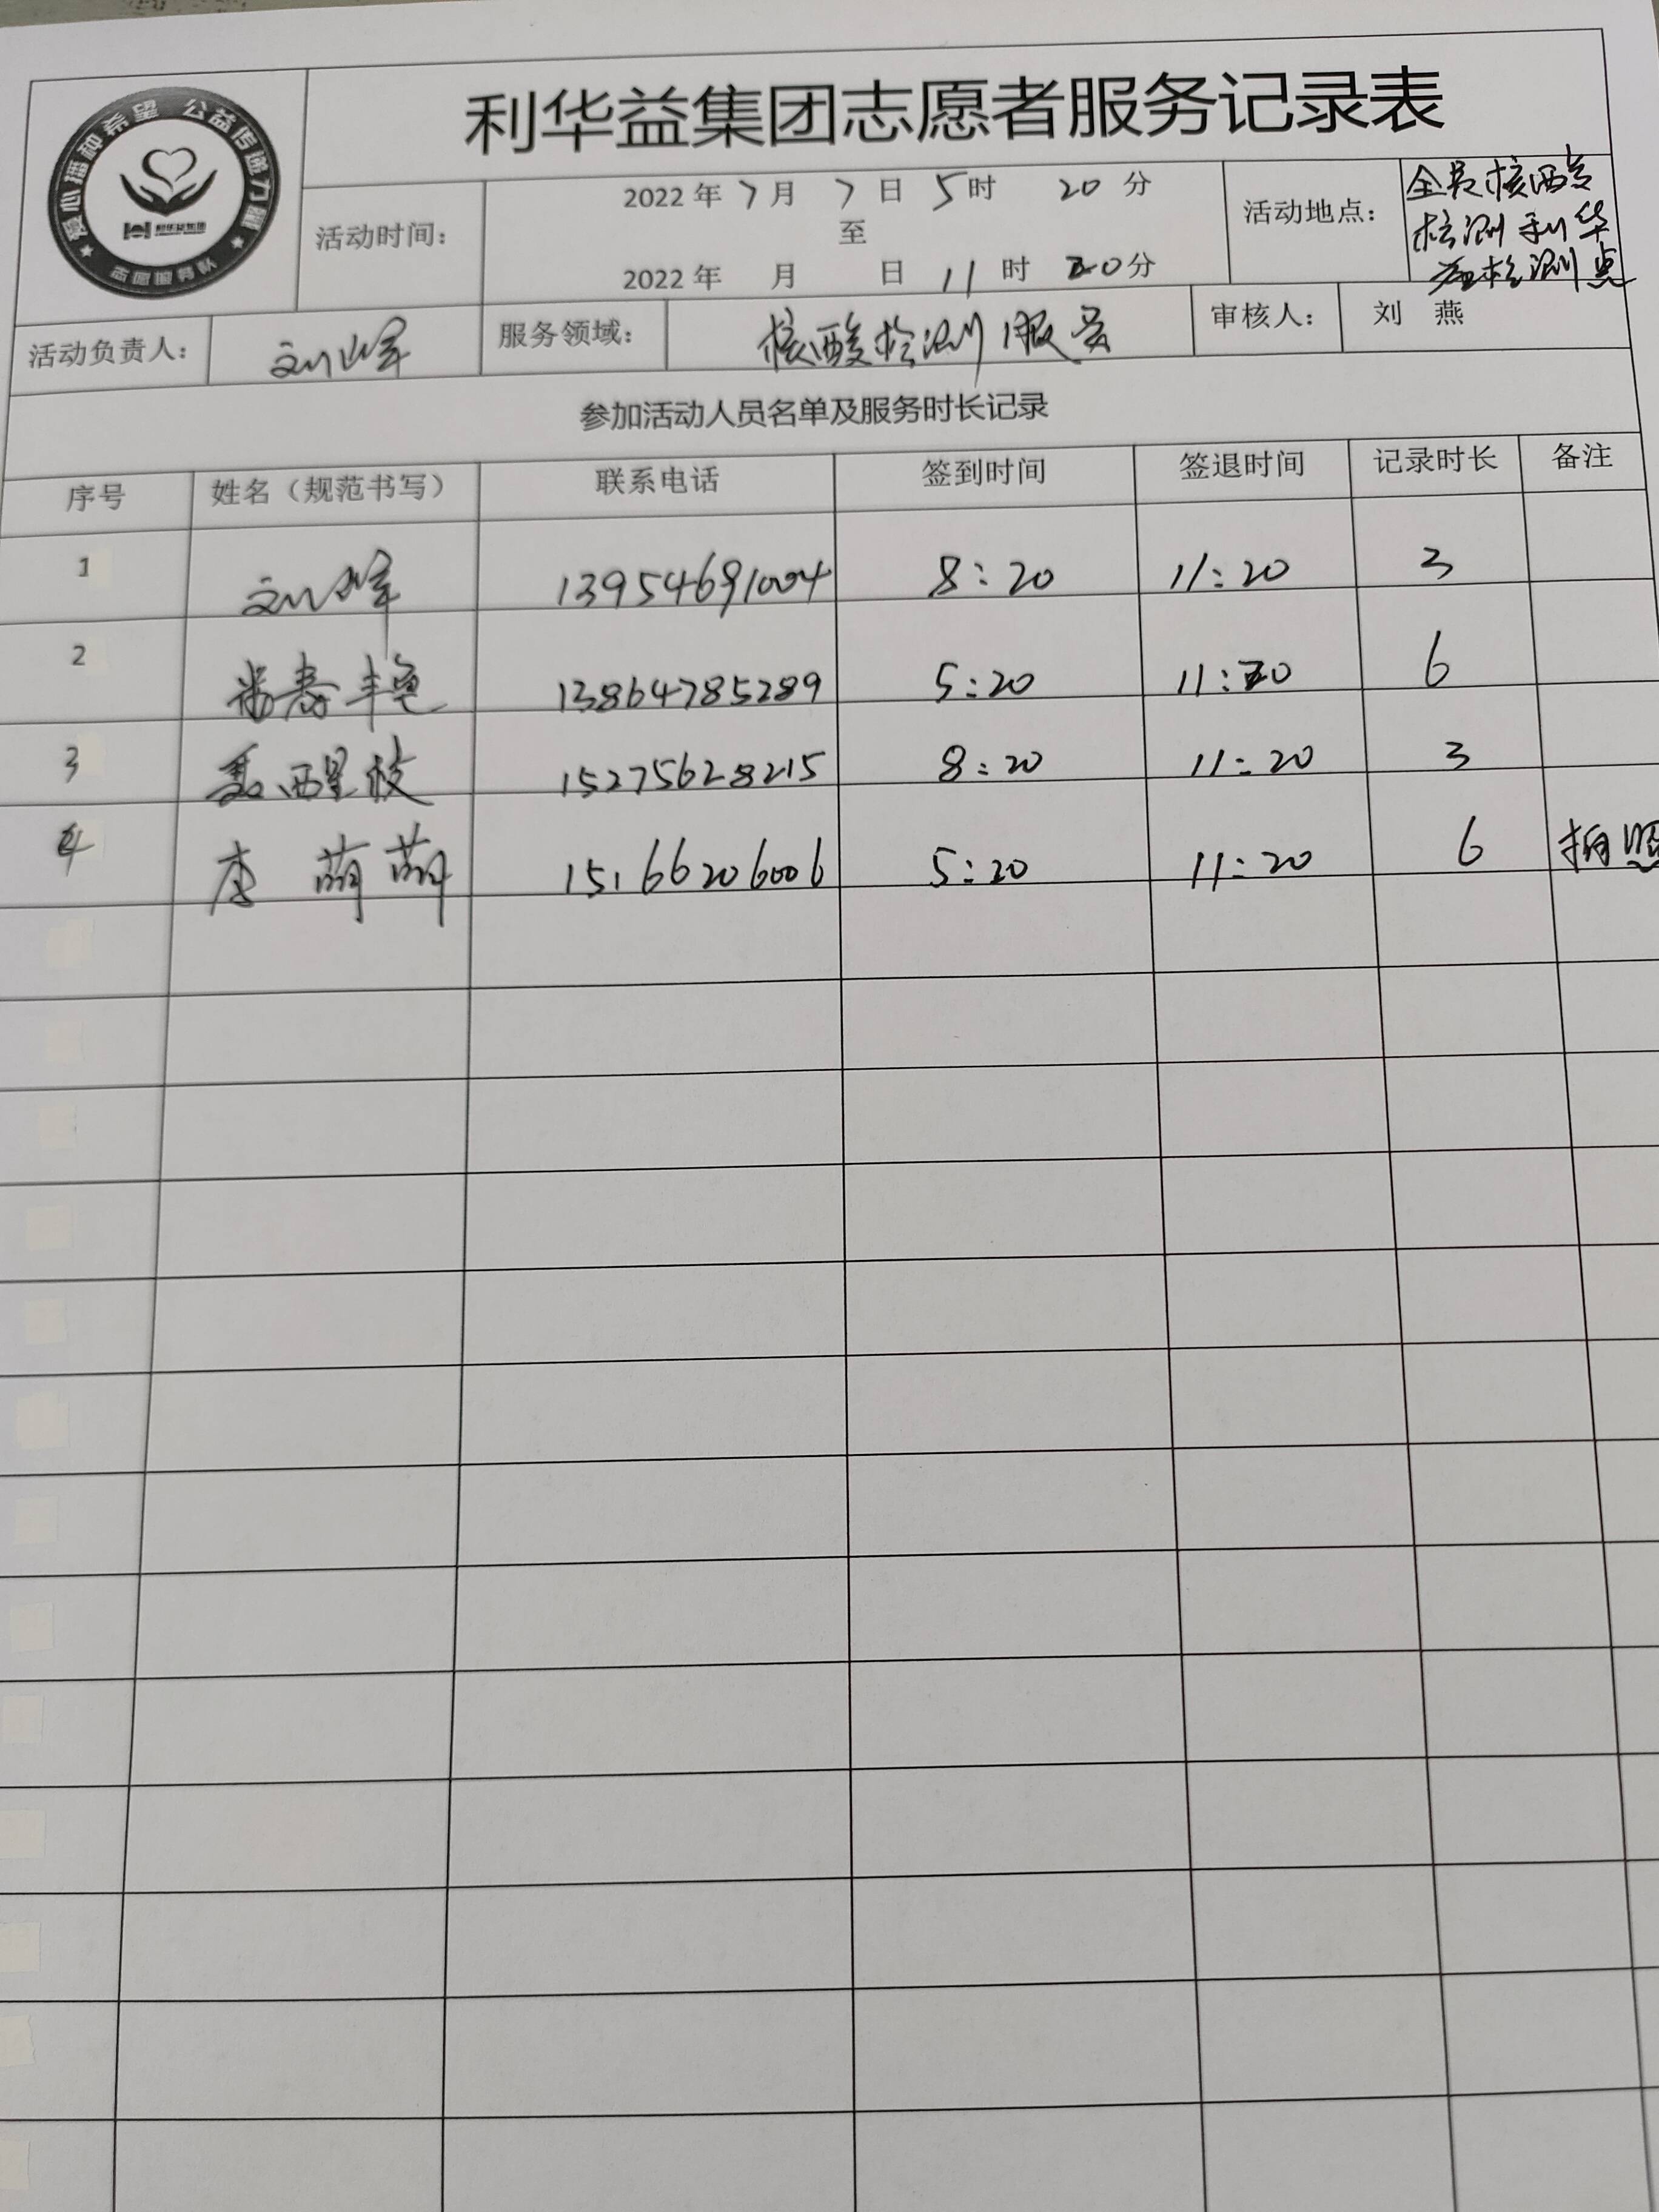 爱心播种希望 公益传递力量
利华益集团
志愿服务队
利华益集团志愿者服务记录表
活动时间：
2022年 7月 7日 5时 20分
至
2022年 月 日 11时 20分
活动地点：
全员核酸
检测利华
益检测点
活动负责人：
刘峰
服务领域：
核酸检测服务
审核人：
刘 燕
参加活动人员名单及服务时长记录
序号 姓名（规范书写） 联系电话 签到时间 签退时间 记录时长 备注
1 刘峰 13954691004 8:20 11:20 3
2 13864785289 5:20 11:20 6
3 15275628215 8:20 11:20 3
4 李萌萌 15166206006 5:20 11:20 6 拍照